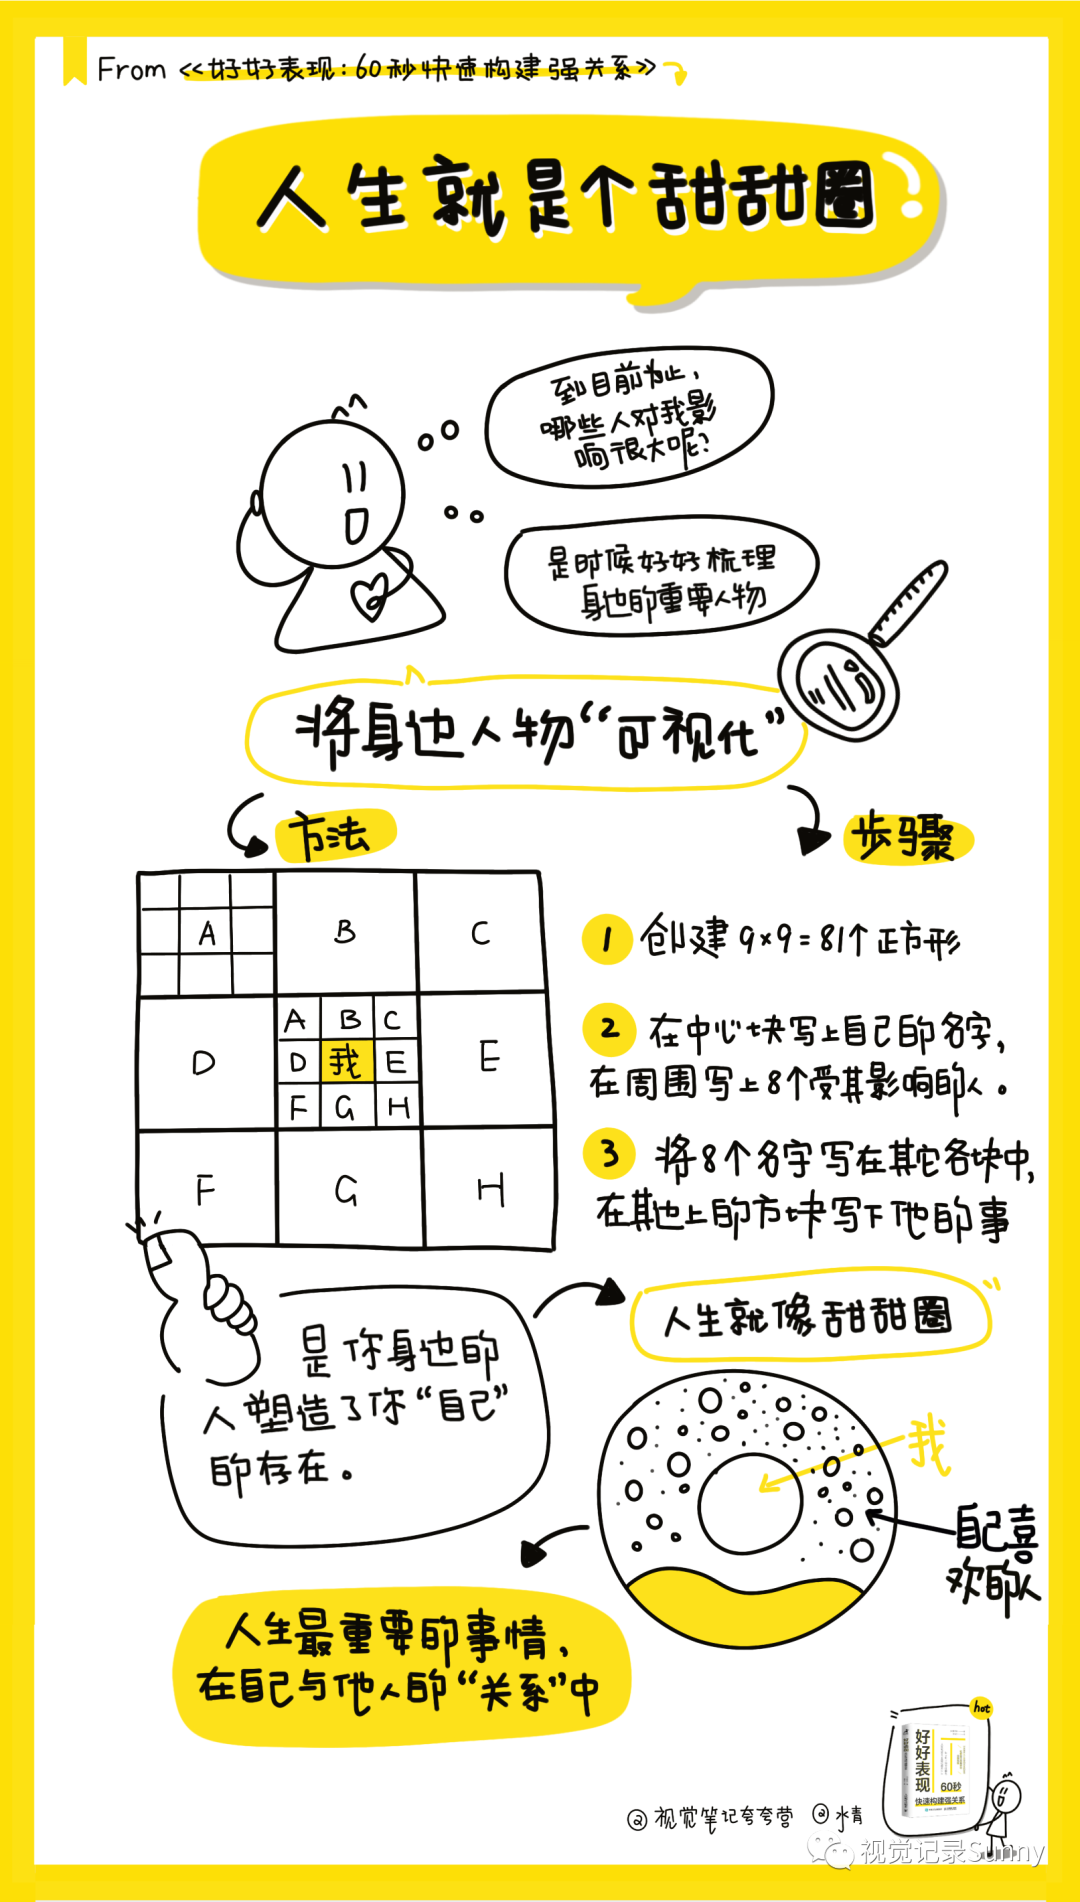 From《好好表现:60秒快速构建强关系》
人生就是个甜甜圈!
到目前为止,
哪些人对我影
响很大呢?
是时候好好梳理
身边的重要人物
将身边人物“可视化”
方法
步骤
A
B
C
D
A B C
D 我 E
F G H
E
F
G
H
1 创建 9×9=81个正方形
2 在中心块写上自己的名字,
在周围写上8个受其影响的人。
3 将8个名字写在其它各块中,
在其边上的方块写下他的事
是你身边的
人塑造了你“自己”
的存在。
人生就像甜甜圈
我
自己喜
欢的人
人生最重要的事情,
在自己与他人的“关系”中
hot
好好表现
60秒
快速构建强关系
@视觉笔记夸夸营 @水青
视觉记录Sunny